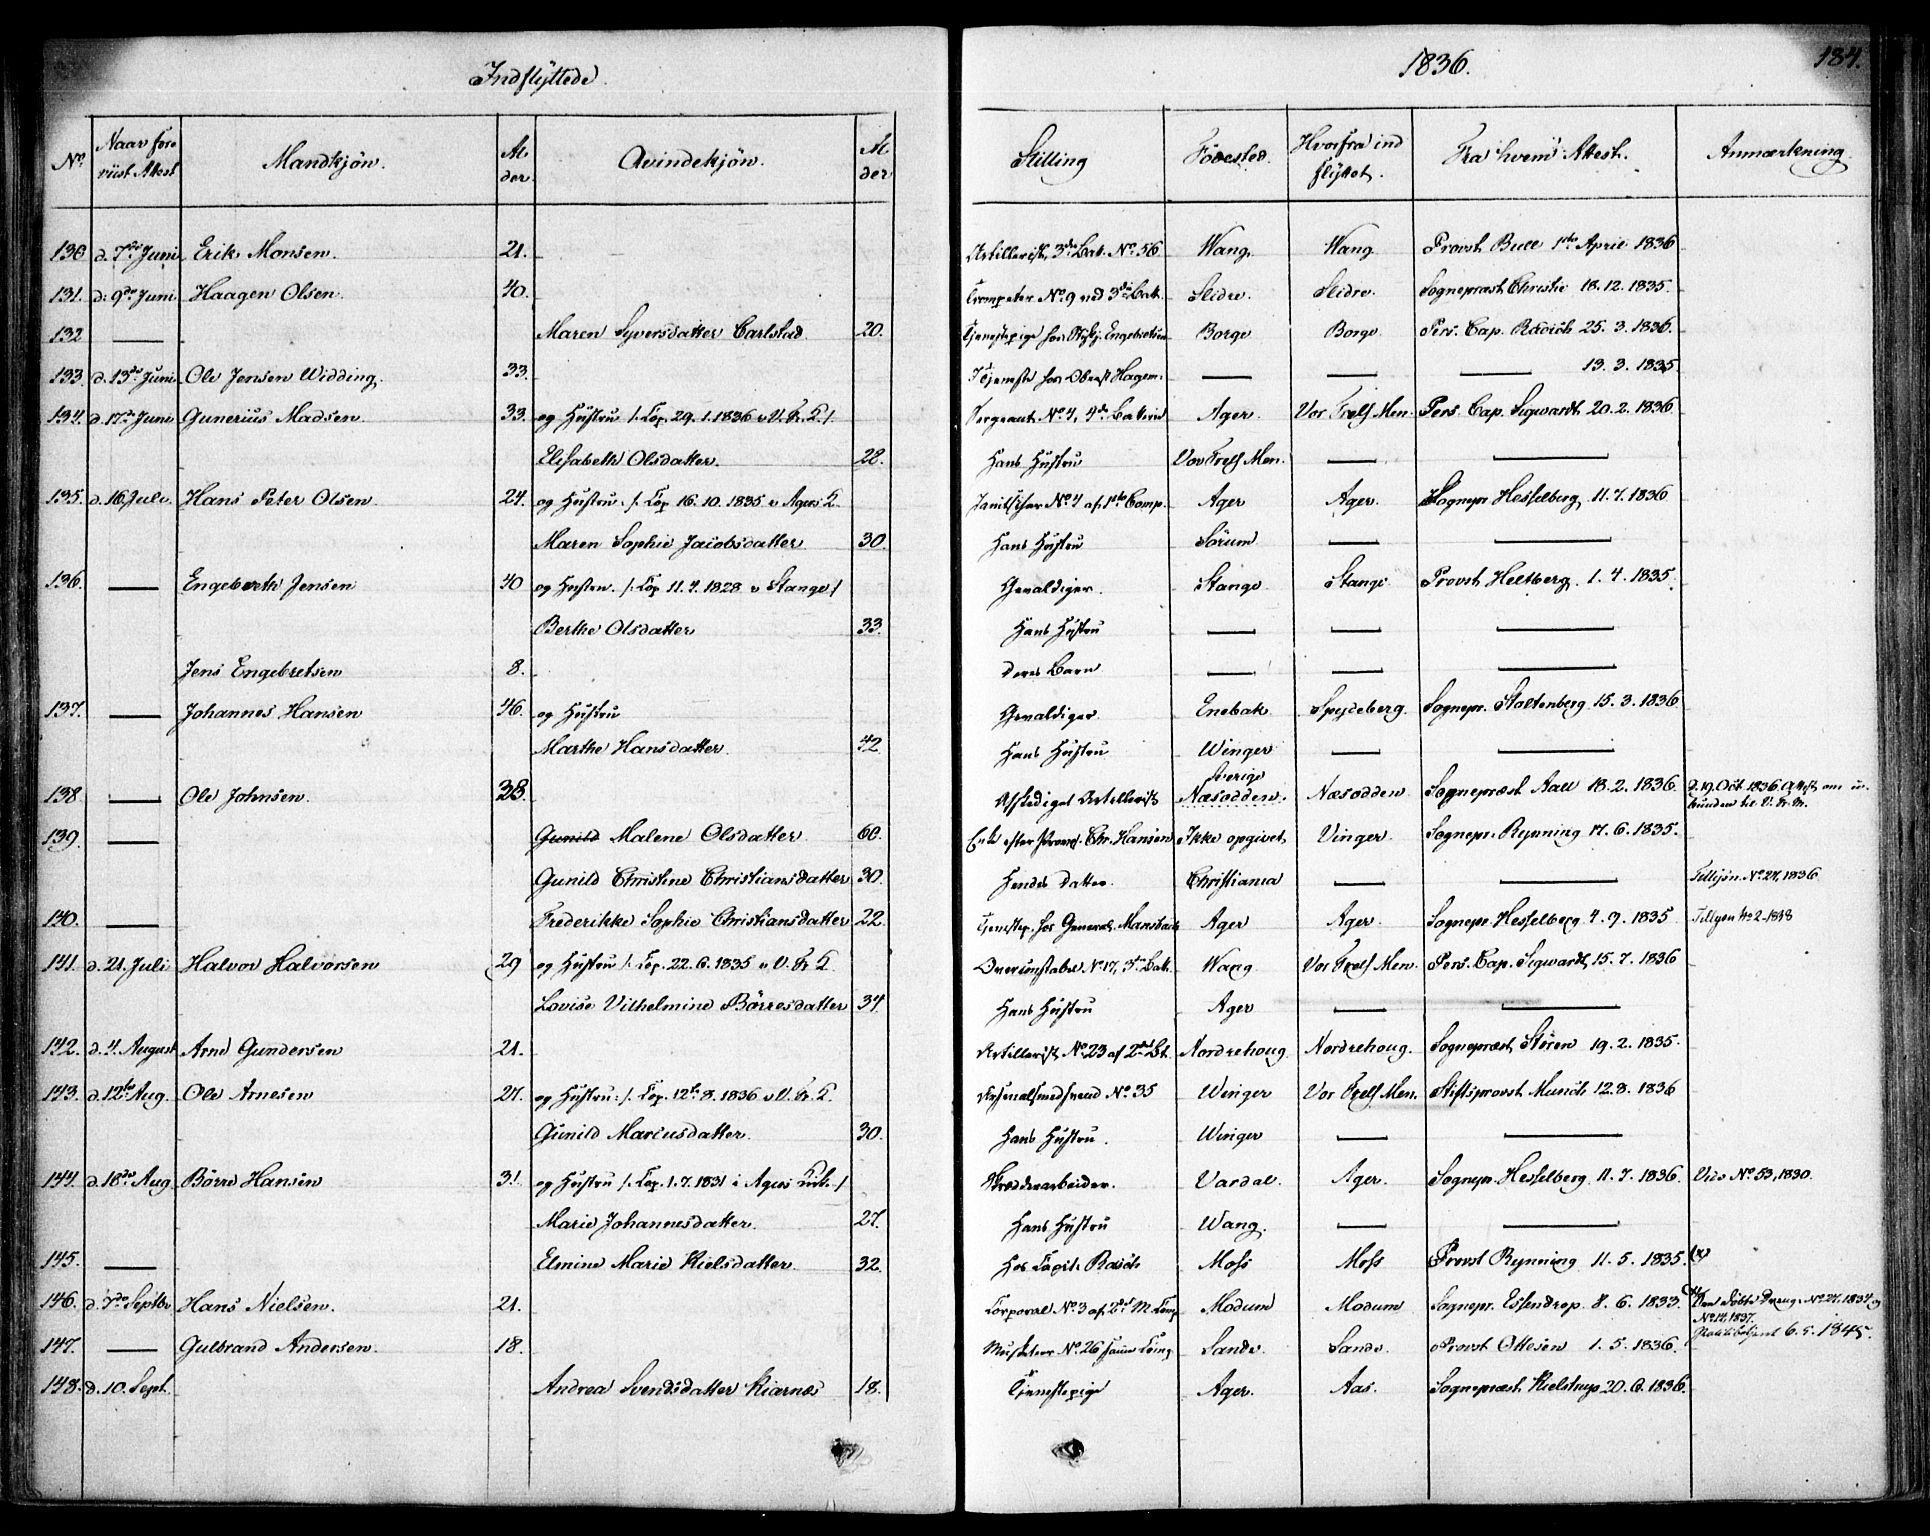 Indflyttede.
1836.
184.
No. | Naar fore viist Attest | Mandkjøn. | Al der. | Qvindekjøn. | Al der | Stilling | Fødested. | Hvorfra ind flyttet. | Fra hvem Attest. | Anmærkning.
130 | d. 7de Juni | Erik Monsen. | 21. | Artillerist, 3die Bat. No. 56 | Wang. | Wang | Provst Bull 1ste April 1836
131. | d: 9de Juni | Haagen Olsen. | 40. | Trompeter No. 9 ved 3die Batt. | Slidre. | Slidre. | Sognepræst Christie 18.12.1835.
132 | — | Maren Syversdatter Carlstad. | 20. | Tjenestepige hos Engebretsen | Borge | Borge | Pers. Cap. 25.3.1836.
133. | d. 13de Juni | Ole Jensen Widding. | 33. | Tjeneste hos Oberst Hagem. | — | — | — 13.3.1835
134. | d. 17de Juni | Gunerius Madsen. | 33. | og Hustru /: Cop. 29.1.1836 v V. Fr. K / | Sergeant No. 4, 4de Batterie | Ager. | Vor Frels Men. | Pers. Cap. Sigwardt 20.2.1836
Elisabeth Olsdatter. | 28. | Hans Hustru | Vor Frels Men. | — | —
135. | d. 16. Juli. | Hans Peter Olsen. | 24. | og Hustru /: Cop 16.10.1835 v Agers K. | Janitshar No. 4 af 1ste Comp. | Ager | Ager. | Sognepr Hesselberg 11.7.1836
Maren Sophie Jacobsdatter | 30. | Hans Hustru | Sørum | — | —
136. | — | Engebreth Jensen | 40 | og Hustru. /: Cop 11.4.1828 v Stange / | Gevaldiger. | Stange | Stange | Provst Heltberg. 1.4.1835.
Berthe Olsdatter | 33. | Hans Hustru | — | — | —
Jens Engebretsen | 8. | Deres Barn | — | — | —
137. | — | Johannes Hansen | 46. | og Hustru | Gevaldiger | Enebak | Spydeberg. | Sognepr. Stoltenberg 15.3.1836
Marthe Hansdatter. | 42. | Hans Hustru | Winger | — | —
138 | — | Ole Johnsen. | 38. | Afskediget Artillerist | Sverige Næsodden. | Næsodden | Sognepræst Aall 18.2.1836. | D. 19. Oct 1836 Attest om ubunden til V. Fr. M.
139. | — | Gunild Malene Olsdatter | 60. | Enke efter Chr. Hansen | Ikke opgivet | Vinger. | Sognepr. Rynning 17.6.1835.
Gunild Christine Christiansdatter | 30. | Hendes Datter. | Christiania | — | — | Tilljøn. No. 27, 1836
140. | — | Frederikke Sophie Christiansdatter | 22. | Tjenestep. hos General Mansbach | Ager | Ager. | Sognepr. Hesselberg 4.9.1835 | No 2-1838
141. | d. 21. Juli | Halvor Halvorsen | 29 | og Hustru /: Cop. 22.6.1835 v V. Fr K | Overconstabel No. 17, 3die Batt. | Wang | Vor Frels Men. | Pers. Cap. Sigwardt, 15.7.1836
Lovise Vilhelmine Børresdatter | 34. | Hans Hustru | Ager | — | —
142. | d. 4. August | Arne Gundersen | 21. | Artillerist No. 23 af 2det Bt. | Nordrehoug | Nordrehoug. | Sognepræst Støren 19.2.1835.
143. | d. 12te Aug. | Ole Arnesen | 27. | og Hustru: /: Cop. 12te 8.1836 v V. Fr. K. | Arsenalsmedsvend No. 35 | Winger | Vor Frels Men. | Stiftsprovst Munch 12.8.1836
Gunild Marcusdatter. | 30. | Hans Hustru. | Winger | — | —
144. | d. 18de Aug | Børre Hansen | 31 | og Hustru /: Cop. 1.7.1831 i Agers Kirk. / | Skrædderarbeider. | Vardal. | Ager. | Sognepr. Hesselberg 11.7.1836 | Vide No. 53, 1830.
Marie Johannesdatter. | 27. | Hans Hustru | Wang. | — | —
145. | — | Elmine Marie Nielsdatter. | 32. | Hos Capit: Rasch | Moss | Moss | Provst Rynning 11.5.1835.
146. | d. 7de Septbr | Hans Nielsen. | 21. | Corporal No. 3 af 2det M. Comp | Modum | Modum | Sognepr. Essendrop 8.6.1833. | Den døbte Dreng. No. 21. 1834 og No. 14, 1837.
147. | — | Gulbrand Andersen. | 18. | Musketeer No. 26 samme Comp | Sande. | Sande. | Provst Ottesen 1.5.1836. | 6.5.1845.
148. | d. 10. Sept. | Andrea Svendsdatter Kiærnæs | 18. | Tjenestepige | Ager. | Aas. | Sognepræst Kielstrup 20.6.1836.